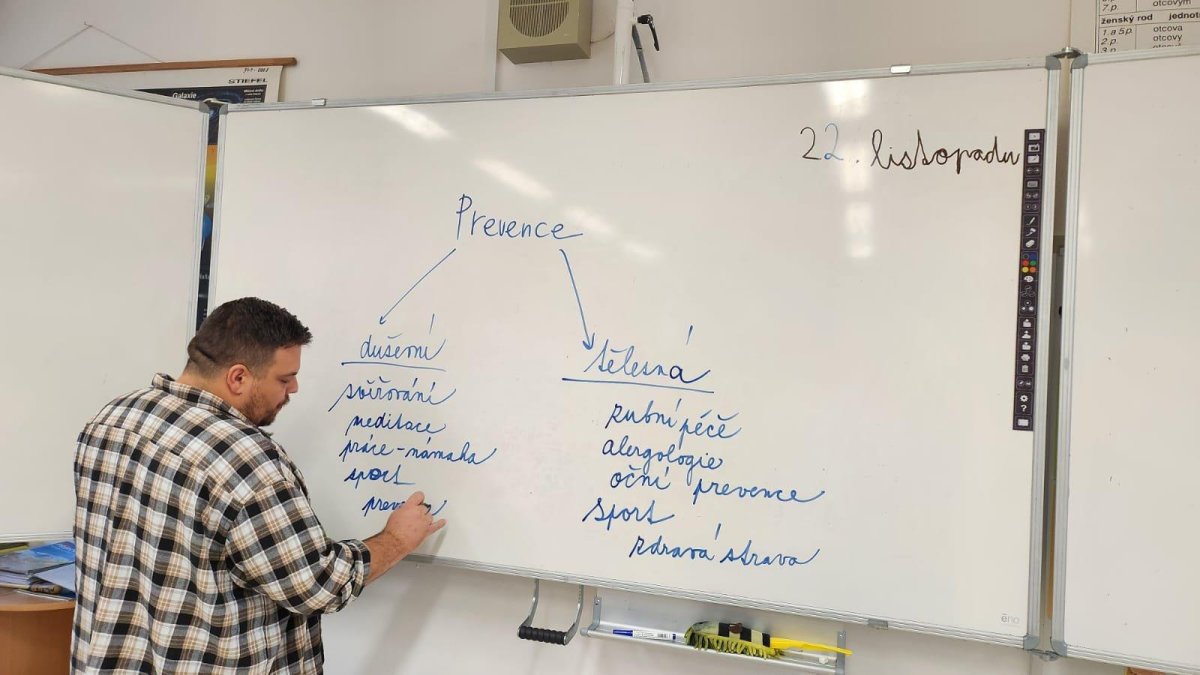 7.p. otcovým
ženský rod jednotn
1. a 5.p. otcova
2.p. otcovy
3.p.
STIEFEL
Galaxie
22. listopadu
Prevence
duševní
tělesná
svěřování
meditace
práce-námaha
sport
zubní péče
alergologie
oční prevence
sport
zdravá strava
eno